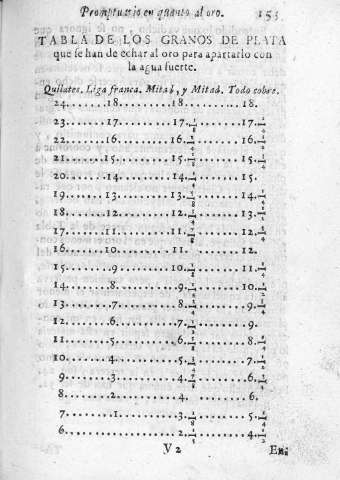 Promptuario en quanto al oro. 153
TABLA DE LOS GRANOS DE PLATA
que se han de echar al oro para apartarlo con
la agua fuerte.
Quilates. Liga franca. Mitad, y Mitad. Todo cobre.
24......18..........18..........18.
23......17..........17. 1/8......17. 1/4
22......16..........16. 1/4......16. 1/2
21......15..........15. 3/8......15. 3/4
20......14..........14. 1/2......15.
19......13..........13. 5/8......14. 1/4
18......12..........12. 3/4......13. 1/2
17......11..........11. 7/8......12. 3/4
16......10..........11..........12.
15.......9..........10. 1/8......11. 1/4
14.......8...........9. 1/4......10. 1/2
13.......7...........8. 3/8.......9. 3/4
12.......6...........7. 1/2.......9.
11.......5...........6. 5/8.......8. 1/4
10.......4...........5. 3/4.......7. 1/2
9.......3...........4. 7/8.......6. 3/4
8.......2...........4...........6.
7.......1...........3. 1/8.......5. 1/4
6...................2. 1/4.......4. 1/2
V 2 En